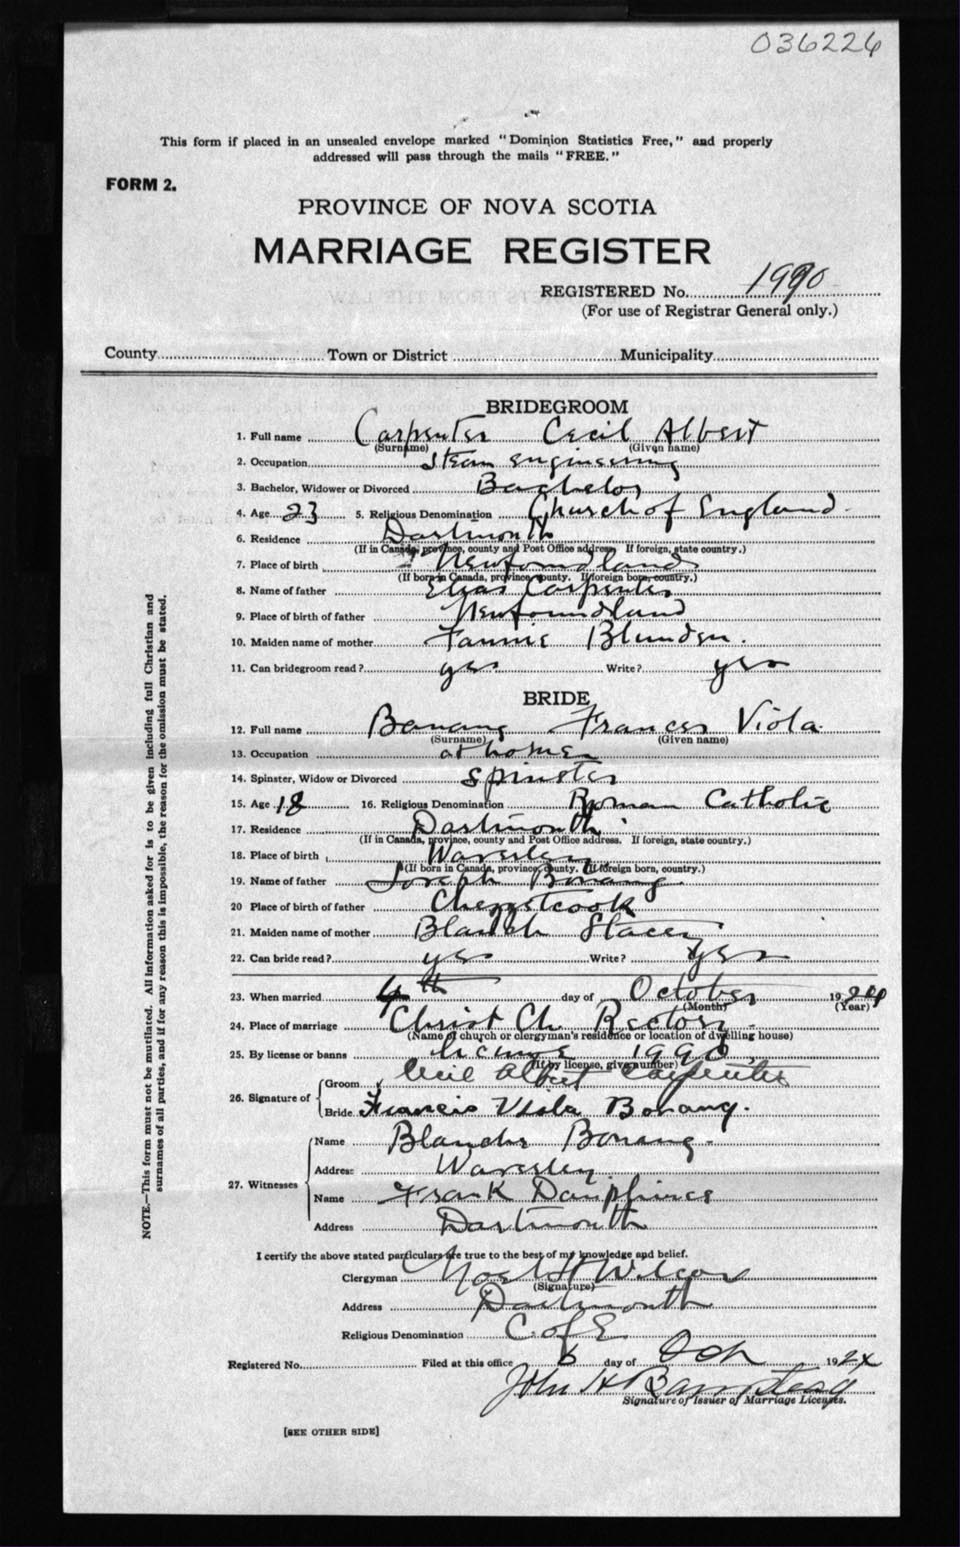 036226
This form if placed in an unsealed envelope marked "Dominion Statistics Free," and properly
addressed will pass through the mails "FREE."
FORM 2.
PROVINCE OF NOVA SCOTIA
MARRIAGE REGISTER
REGISTERED No. 1990
(For use of Registrar General only.)
County Town or District Municipality
BRIDEGROOM
1. Full name Carpenter Cecil Albert
(Surname) (Given name)
2. Occupation Steam engineering
3. Bachelor, Widower or Divorced Bachelor
4. Age 23 5. Religious Denomination Church of England
6. Residence Dartmouth
(If in Canada, province, county and Post Office address. If foreign, state country.)
7. Place of birth Newfoundland
(If born in Canada, province, county. If foreign born, country.)
8. Name of father Elias Carpenter
9. Place of birth of father Newfoundland
10. Maiden name of mother Fannie Blunden.
11. Can bridegroom read? yes Write? yes
BRIDE
12. Full name Bonang Frances Viola
(Surname) (Given name)
13. Occupation at home
14. Spinster, Widow or Divorced spinster
15. Age 18 16. Religious Denomination Roman Catholic
17. Residence Dartmouth
(If in Canada, province, county and Post Office address. If foreign, state country.)
18. Place of birth Waverley
(If born in Canada, province, county. If foreign born, country.)
19. Name of father Joseph Bonang
20 Place of birth of father Chezzetcook
21. Maiden name of mother Blanch Stacey
22. Can bride read? yes Write? yes
23. When married 4th day of October 1924
(Month) (Year)
24. Place of marriage Christ Ch Rectory
(Name of church or clergyman's residence or location of dwelling house)
25. By license or banns license 1990
(If by license, give number)
26. Signature of Groom Cecil Albert Carpenter
Bride Francis Viola Bonang.
27. Witnesses
Name Blanche Bonang
Address Waverley
Name Frank Dauphinee
Address Dartmouth
I certify the above stated particulars are true to the best of my knowledge and belief.
Clergyman Noel H Wilcox
(Signature)
Address Dartmouth
Religious Denomination C. of E
Registered No. Filed at this office 6 day of Oct 1924
John H
Signature of Issuer of Marriage Licenses.
[SEE OTHER SIDE]
NOTE.—This form must not be mutilated. All information asked for is to be given including full Christian and
surnames of all parties, and if for any reason this is impossible, the reason for the omission must be stated.